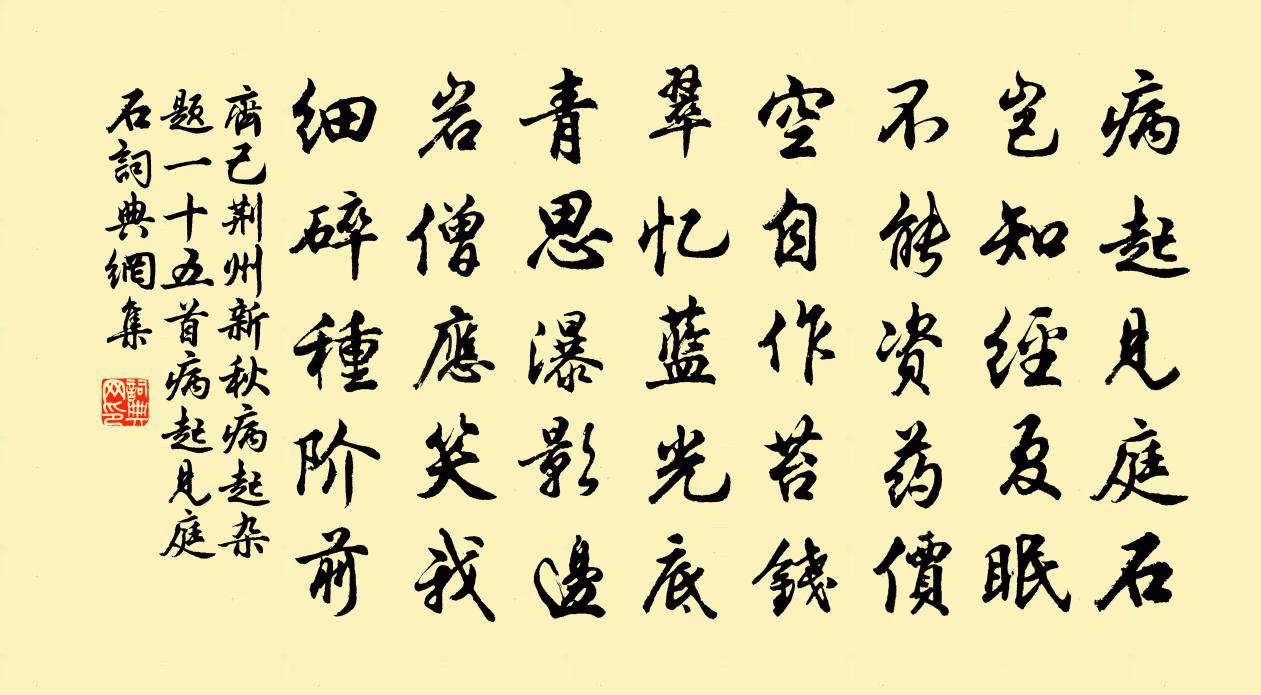 病起見庭石
豈知經夏眠
不能資药價
空自作苔錢
翠忆藍光底
青思瀑影邊
岩僧應笑我
細碎種阶前
齊己荆州新秋病起杂
题一十五首病起見庭
石詞典網集
詞典
网印